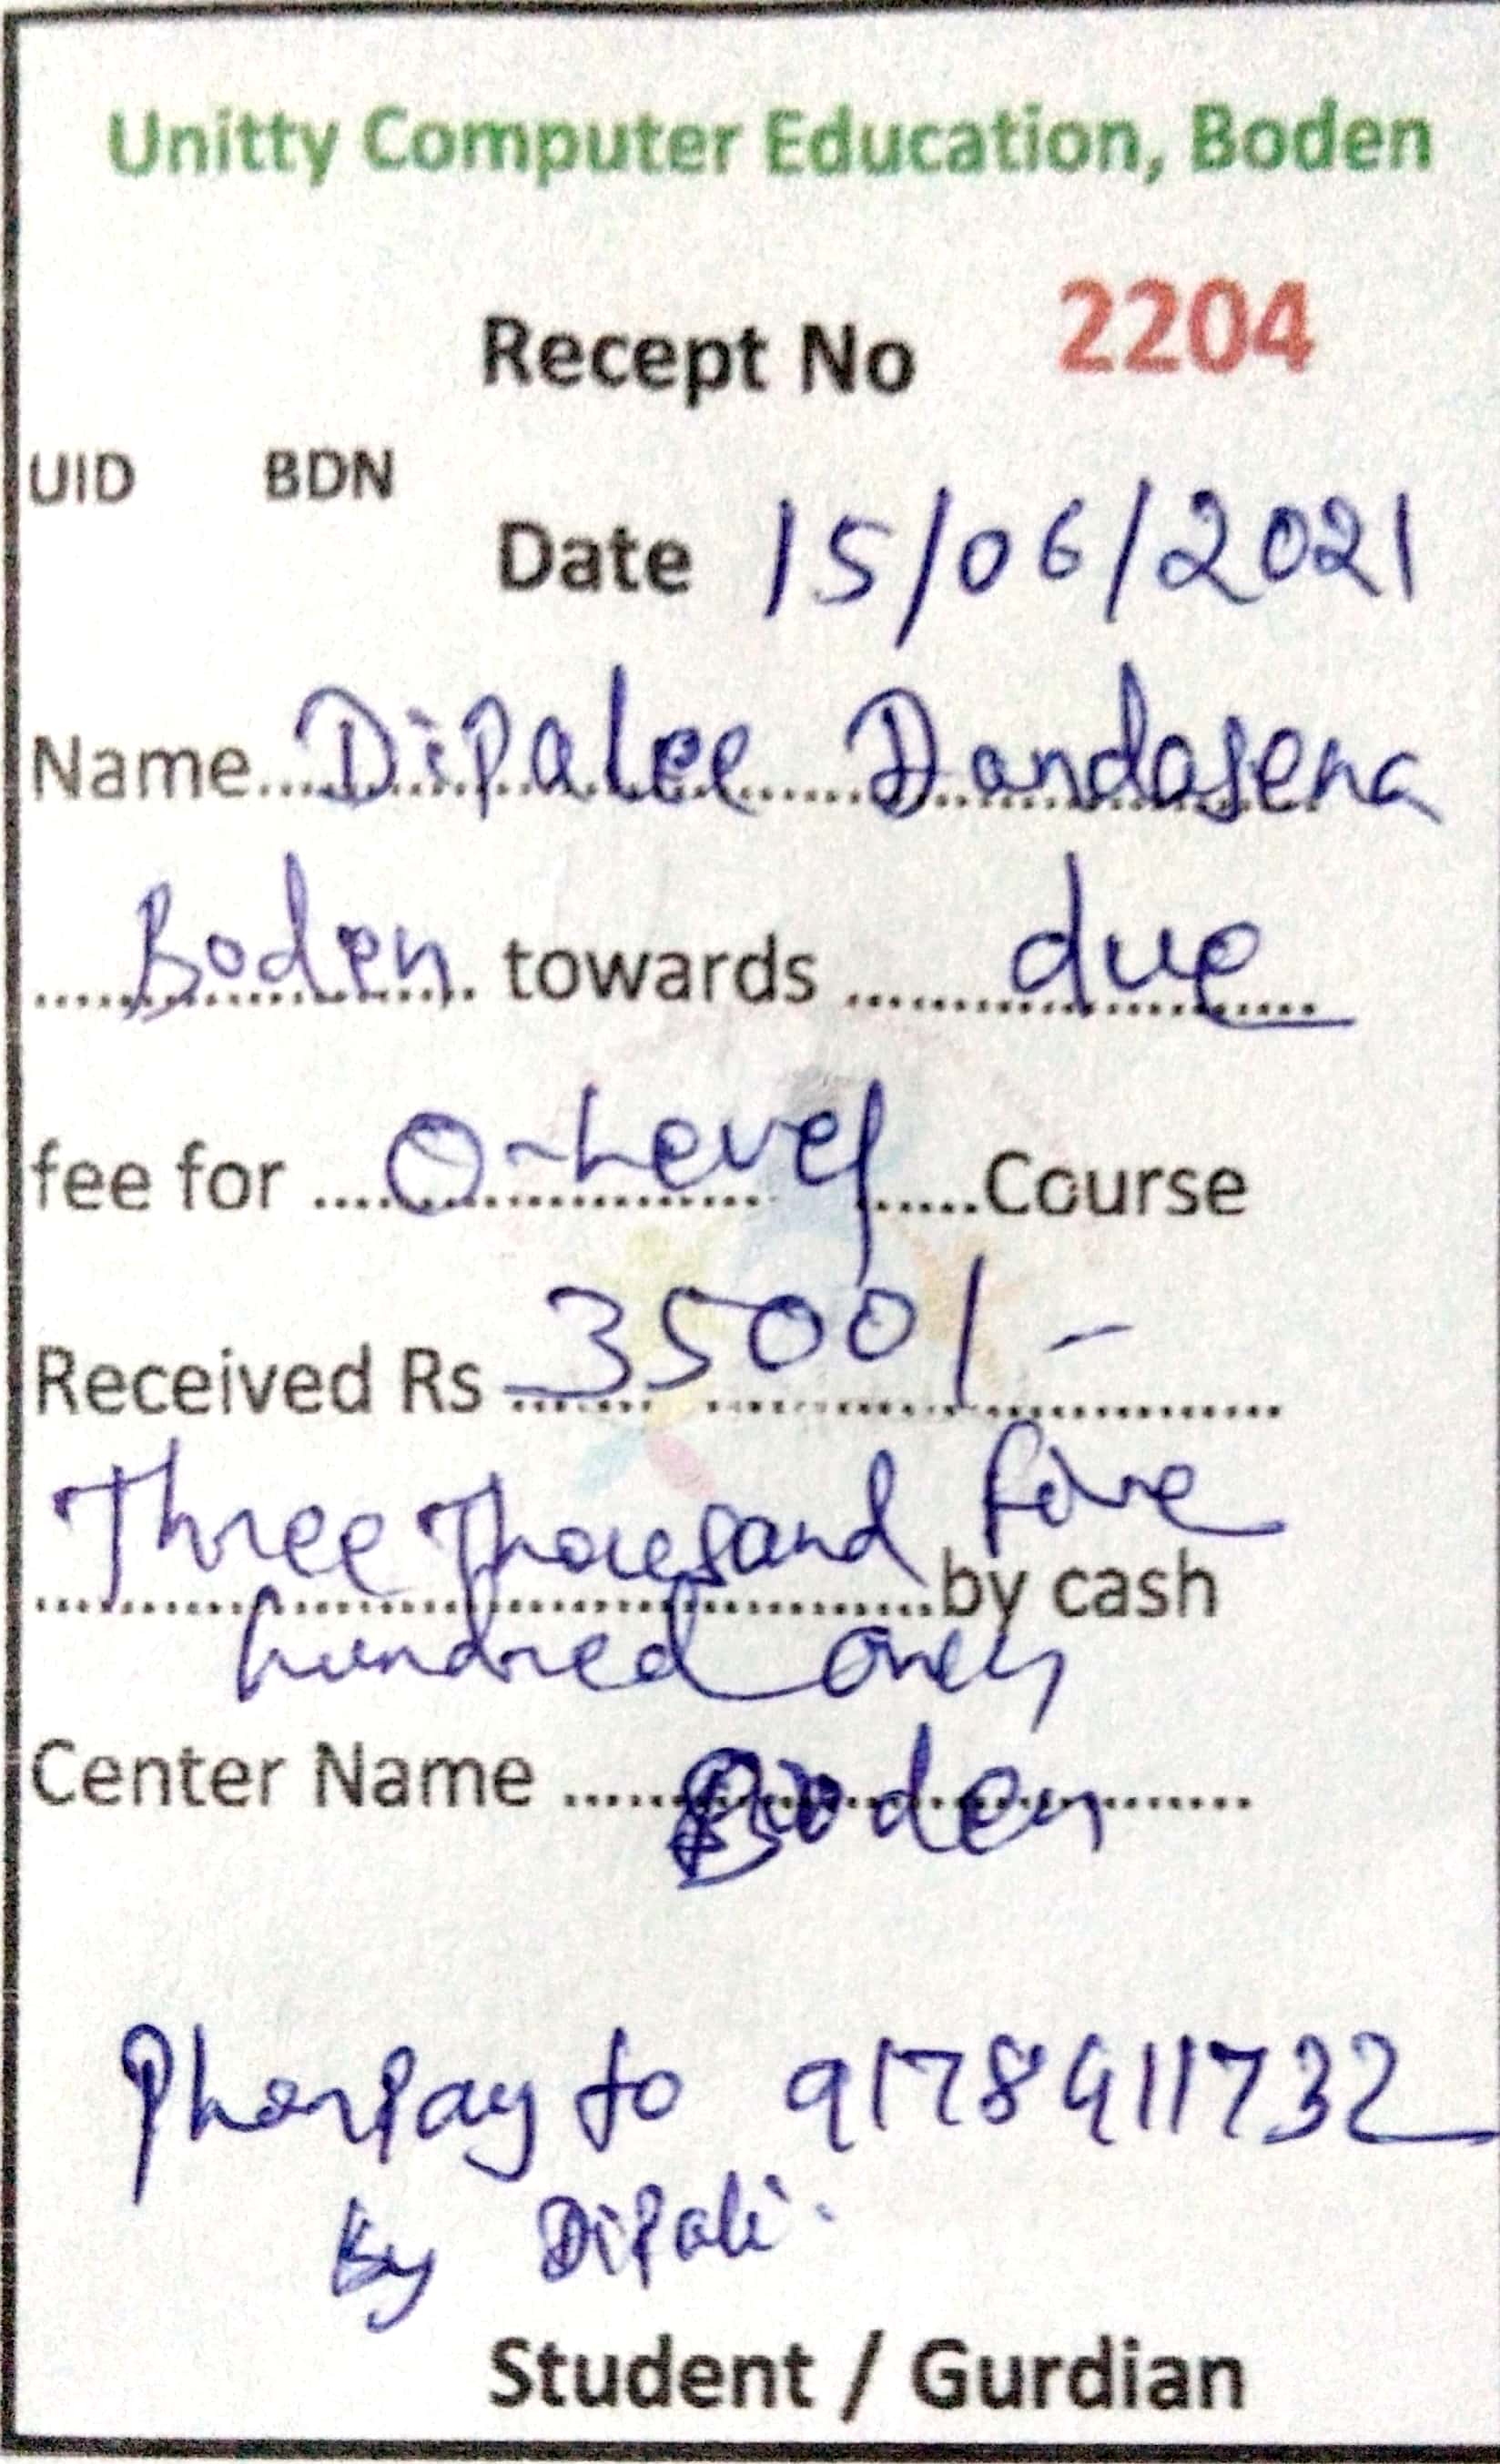 Unitty Computer Education, Boden
Recept No 2204
UID BDN
Date 15/06/2021
Name...Dipalee Dandasena
Boden towards due
fee for O-Level Course
Received Rs 3500/-
Three Thousand five
by cash
hundred only
Center Name Boden
PhonPay to 9178911732
by Dipali
Student / Gurdian